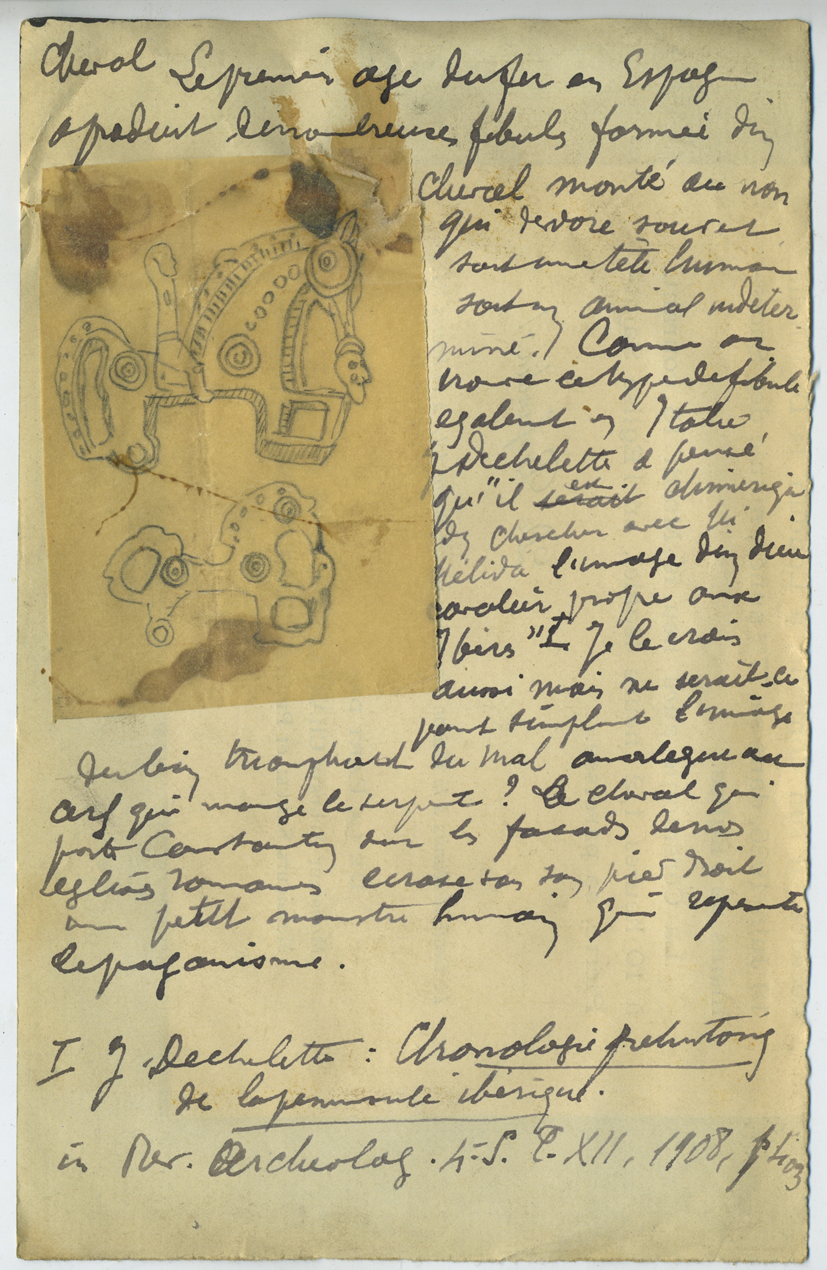 Cheval Le premier age du fer en Espagne
a produit de nombreuses fibules formée d'un
cheval monté ou non
qui devore souvent
soit une tête humain
soit un animal indeter
miné. Comme on
trouve ce type de fibule
egalement en Italie
J Dechelette a pensé
qu'"il serait est
de chercher avec
Mélida l'image d'un dieu
cavalier propre aux
Ibers" I Je le crois
aussi mais ne serait-ce
point simplement l'image
du bien triomphant du mal analogue au
cerf qui mange le serpent ? Le cheval qui
porte Constantin sur les facades de nos
eglises romanes ecrase sous son pied droit
un petit monstre humain qui represente
le paganisme.
I J. Dechelette : Chronologie prehistoriq
de la peninsule ibérique.
in Rev. Archeolog. 4e S. T. XII, 1908, p